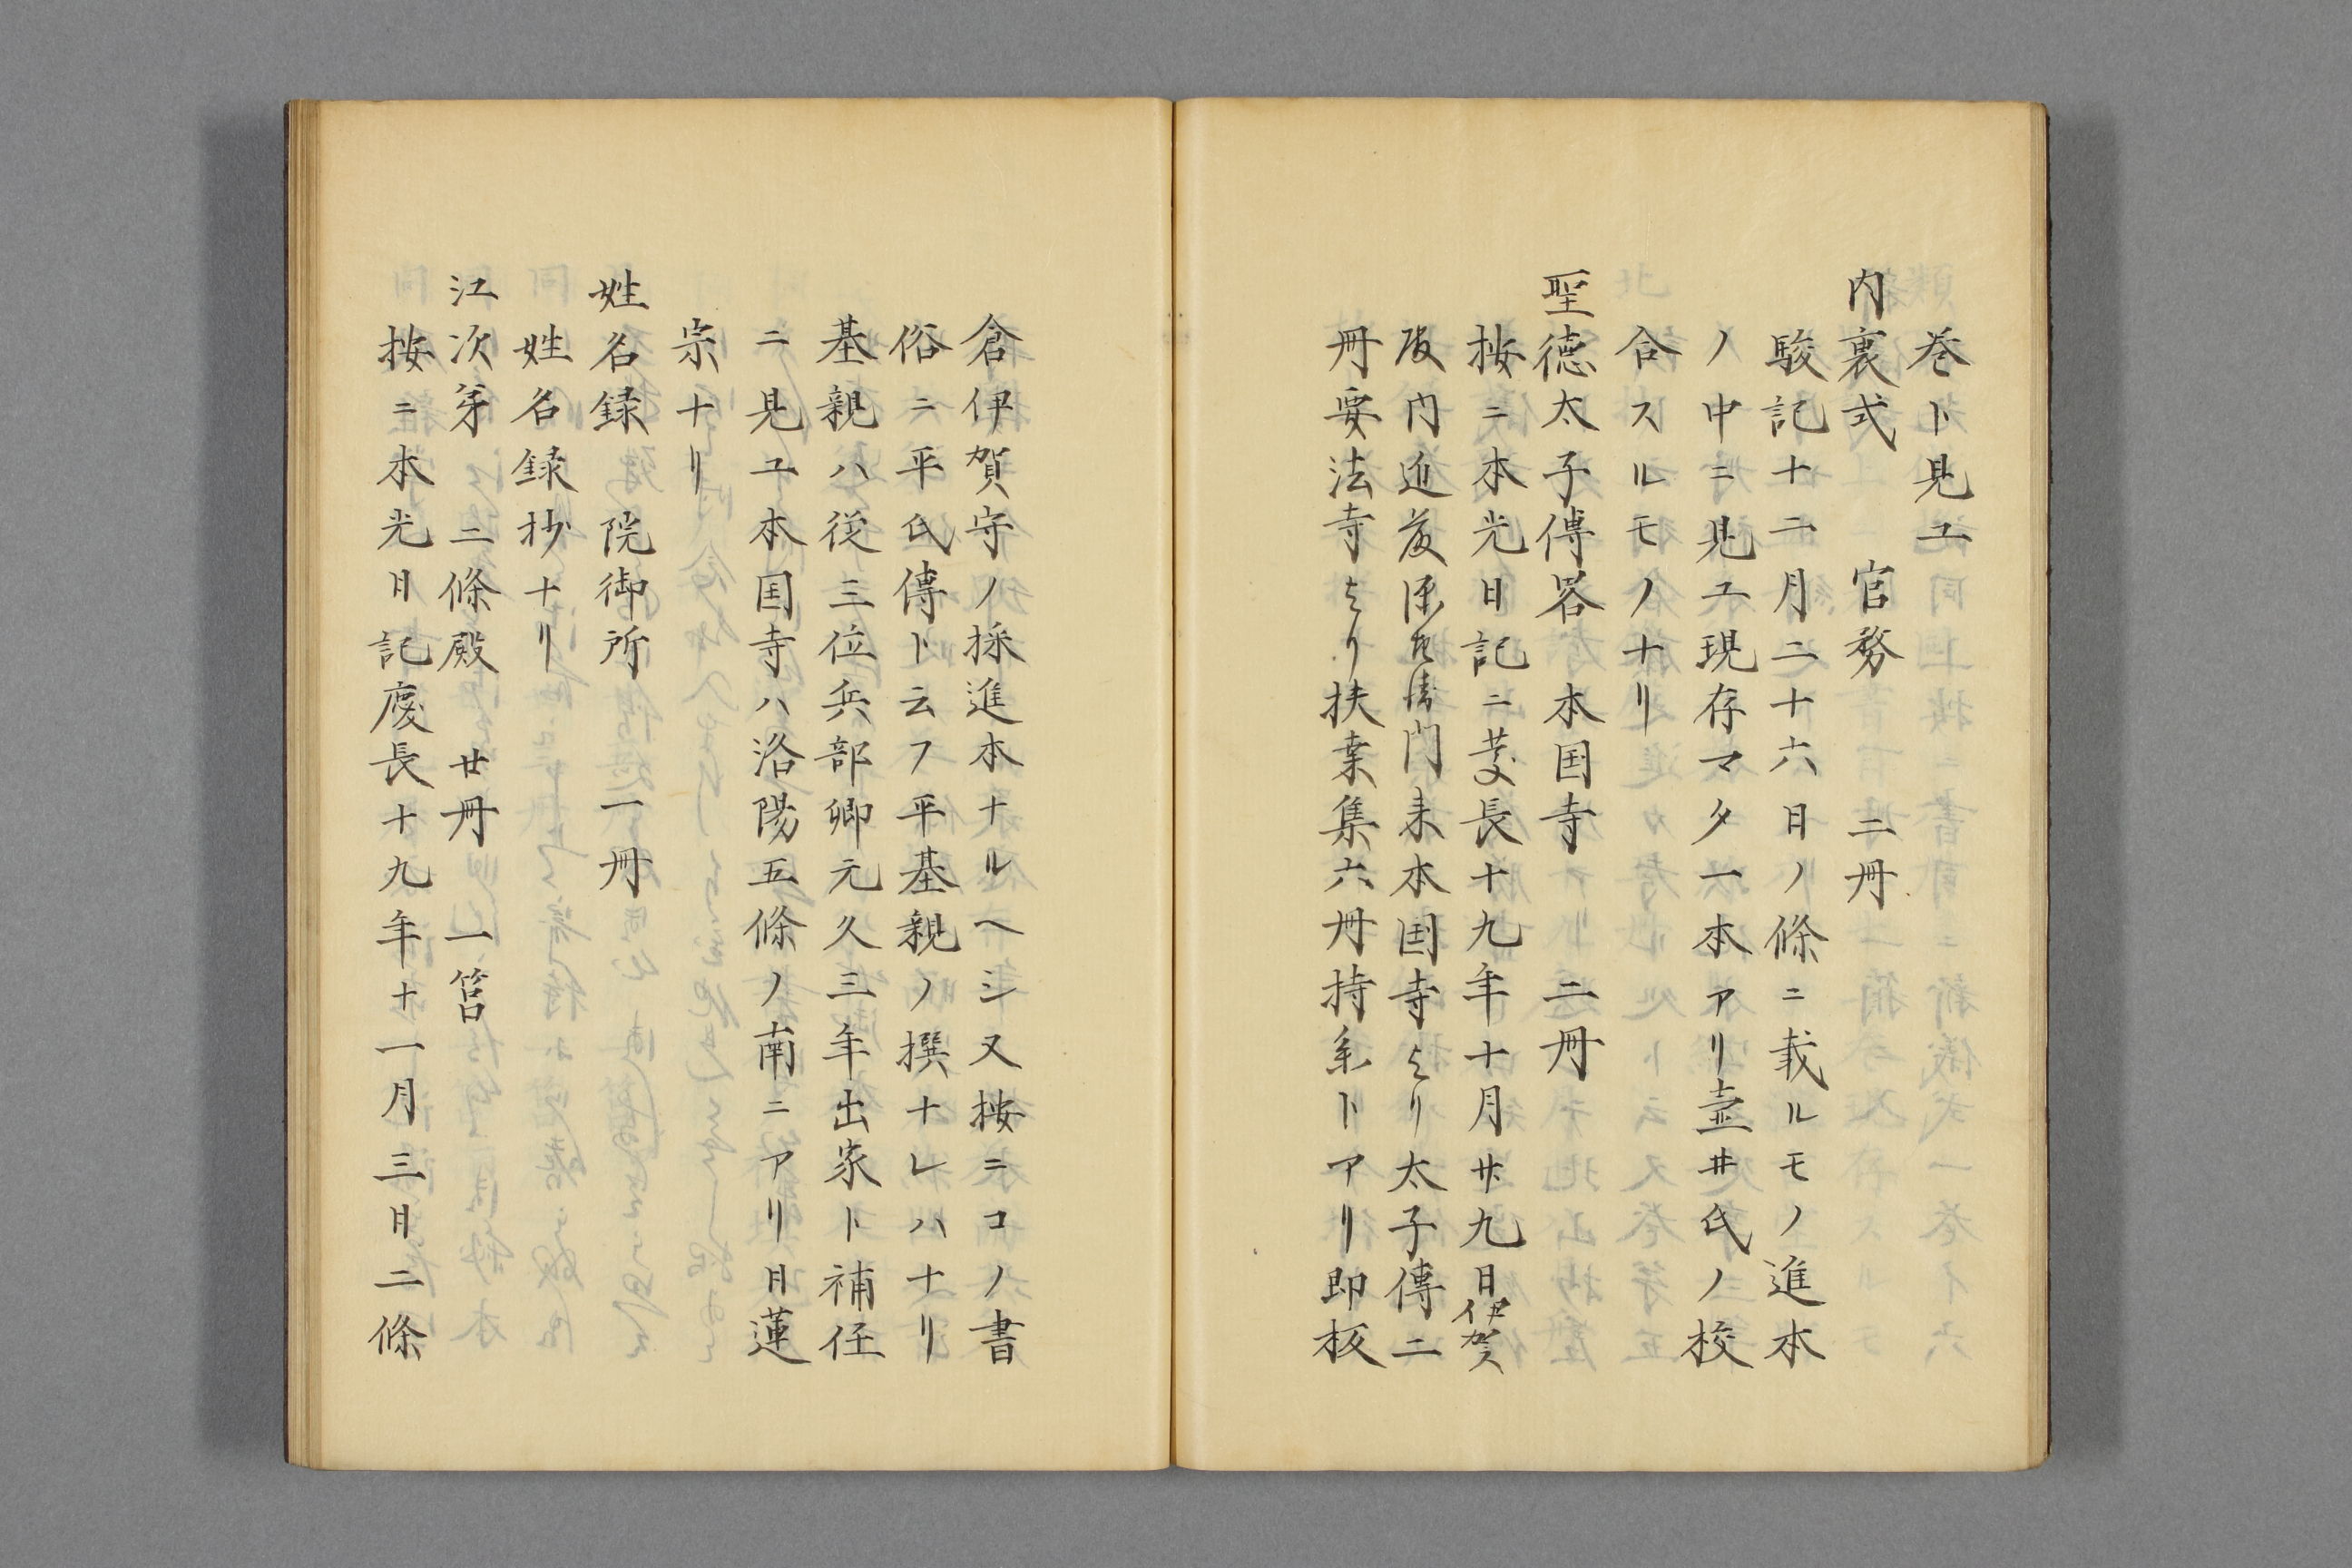 巻ト見ユ
内裏式　官務　二冊
駿記十二月二十六日ノ條ニ載ルモノノ進本
ノ中ニ見ユ現存マタ一本アリ壺井氏ノ校
合スルモノナリ
聖徳太子傳畧　本国寺　二冊
按ニ本光日記ニ慶長十九年十月廿九日伊賀ヘ
後藤源左衛門来本国寺より太子傳二
冊要法寺より扶桒集六冊持参トアリ即板
倉伊賀守ノ採進本ナルヘシ又按ニコノ書
俗ニ平氏傳ト云フ平基親ノ撰ナレハナリ
基親ハ従三位兵部卿元久三年出家ト補任
ニ見ユ本国寺ハ洛陽五條ノ南ニアリ日蓮
宗ナリ
姓名録　院御所　一冊
姓名録抄ナリ
江次苐　二條殿　廿冊　一筥
按ニ本光日記慶長十九年十一月三日二條